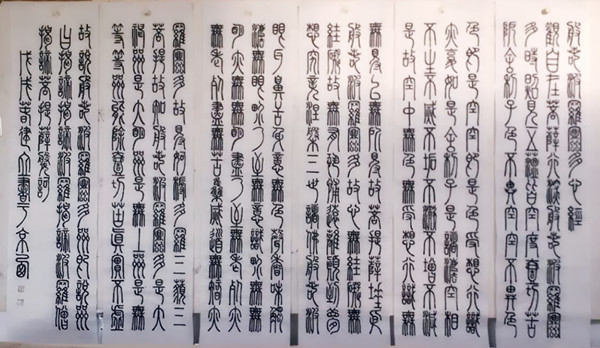 般若波羅蜜多心經
觀自在菩薩行深般若波羅蜜
多時照見五蘊皆空度一切苦
厄舍利子色不異空空不異色
色即是空空即是色受想行識
亦復如是舍利子是諸法空相
不生不滅不垢不淨不增不減
是故空中無色無受想行識無
無得以無所得故菩提薩埵依
般若波羅蜜多故心無罣礙無
罣礙故無有恐怖遠離顛倒夢
想究竟涅槃三世諸佛般若波
眼耳鼻舌身意無色聲香味觸
法無眼界乃至無意識界無無
明亦無無明盡乃至無老死亦
無老死盡無苦集滅道無智亦
羅蜜多故得阿耨多羅三藐三
菩提故知般若波羅蜜多是大
神咒是大明咒是無上咒是無
等等咒能除一切苦真實不虛
故說般若波羅蜜多咒即說咒
曰揭諦揭諦波羅揭諦波羅僧
揭諦菩提薩婆訶
戊戌春建書于京西